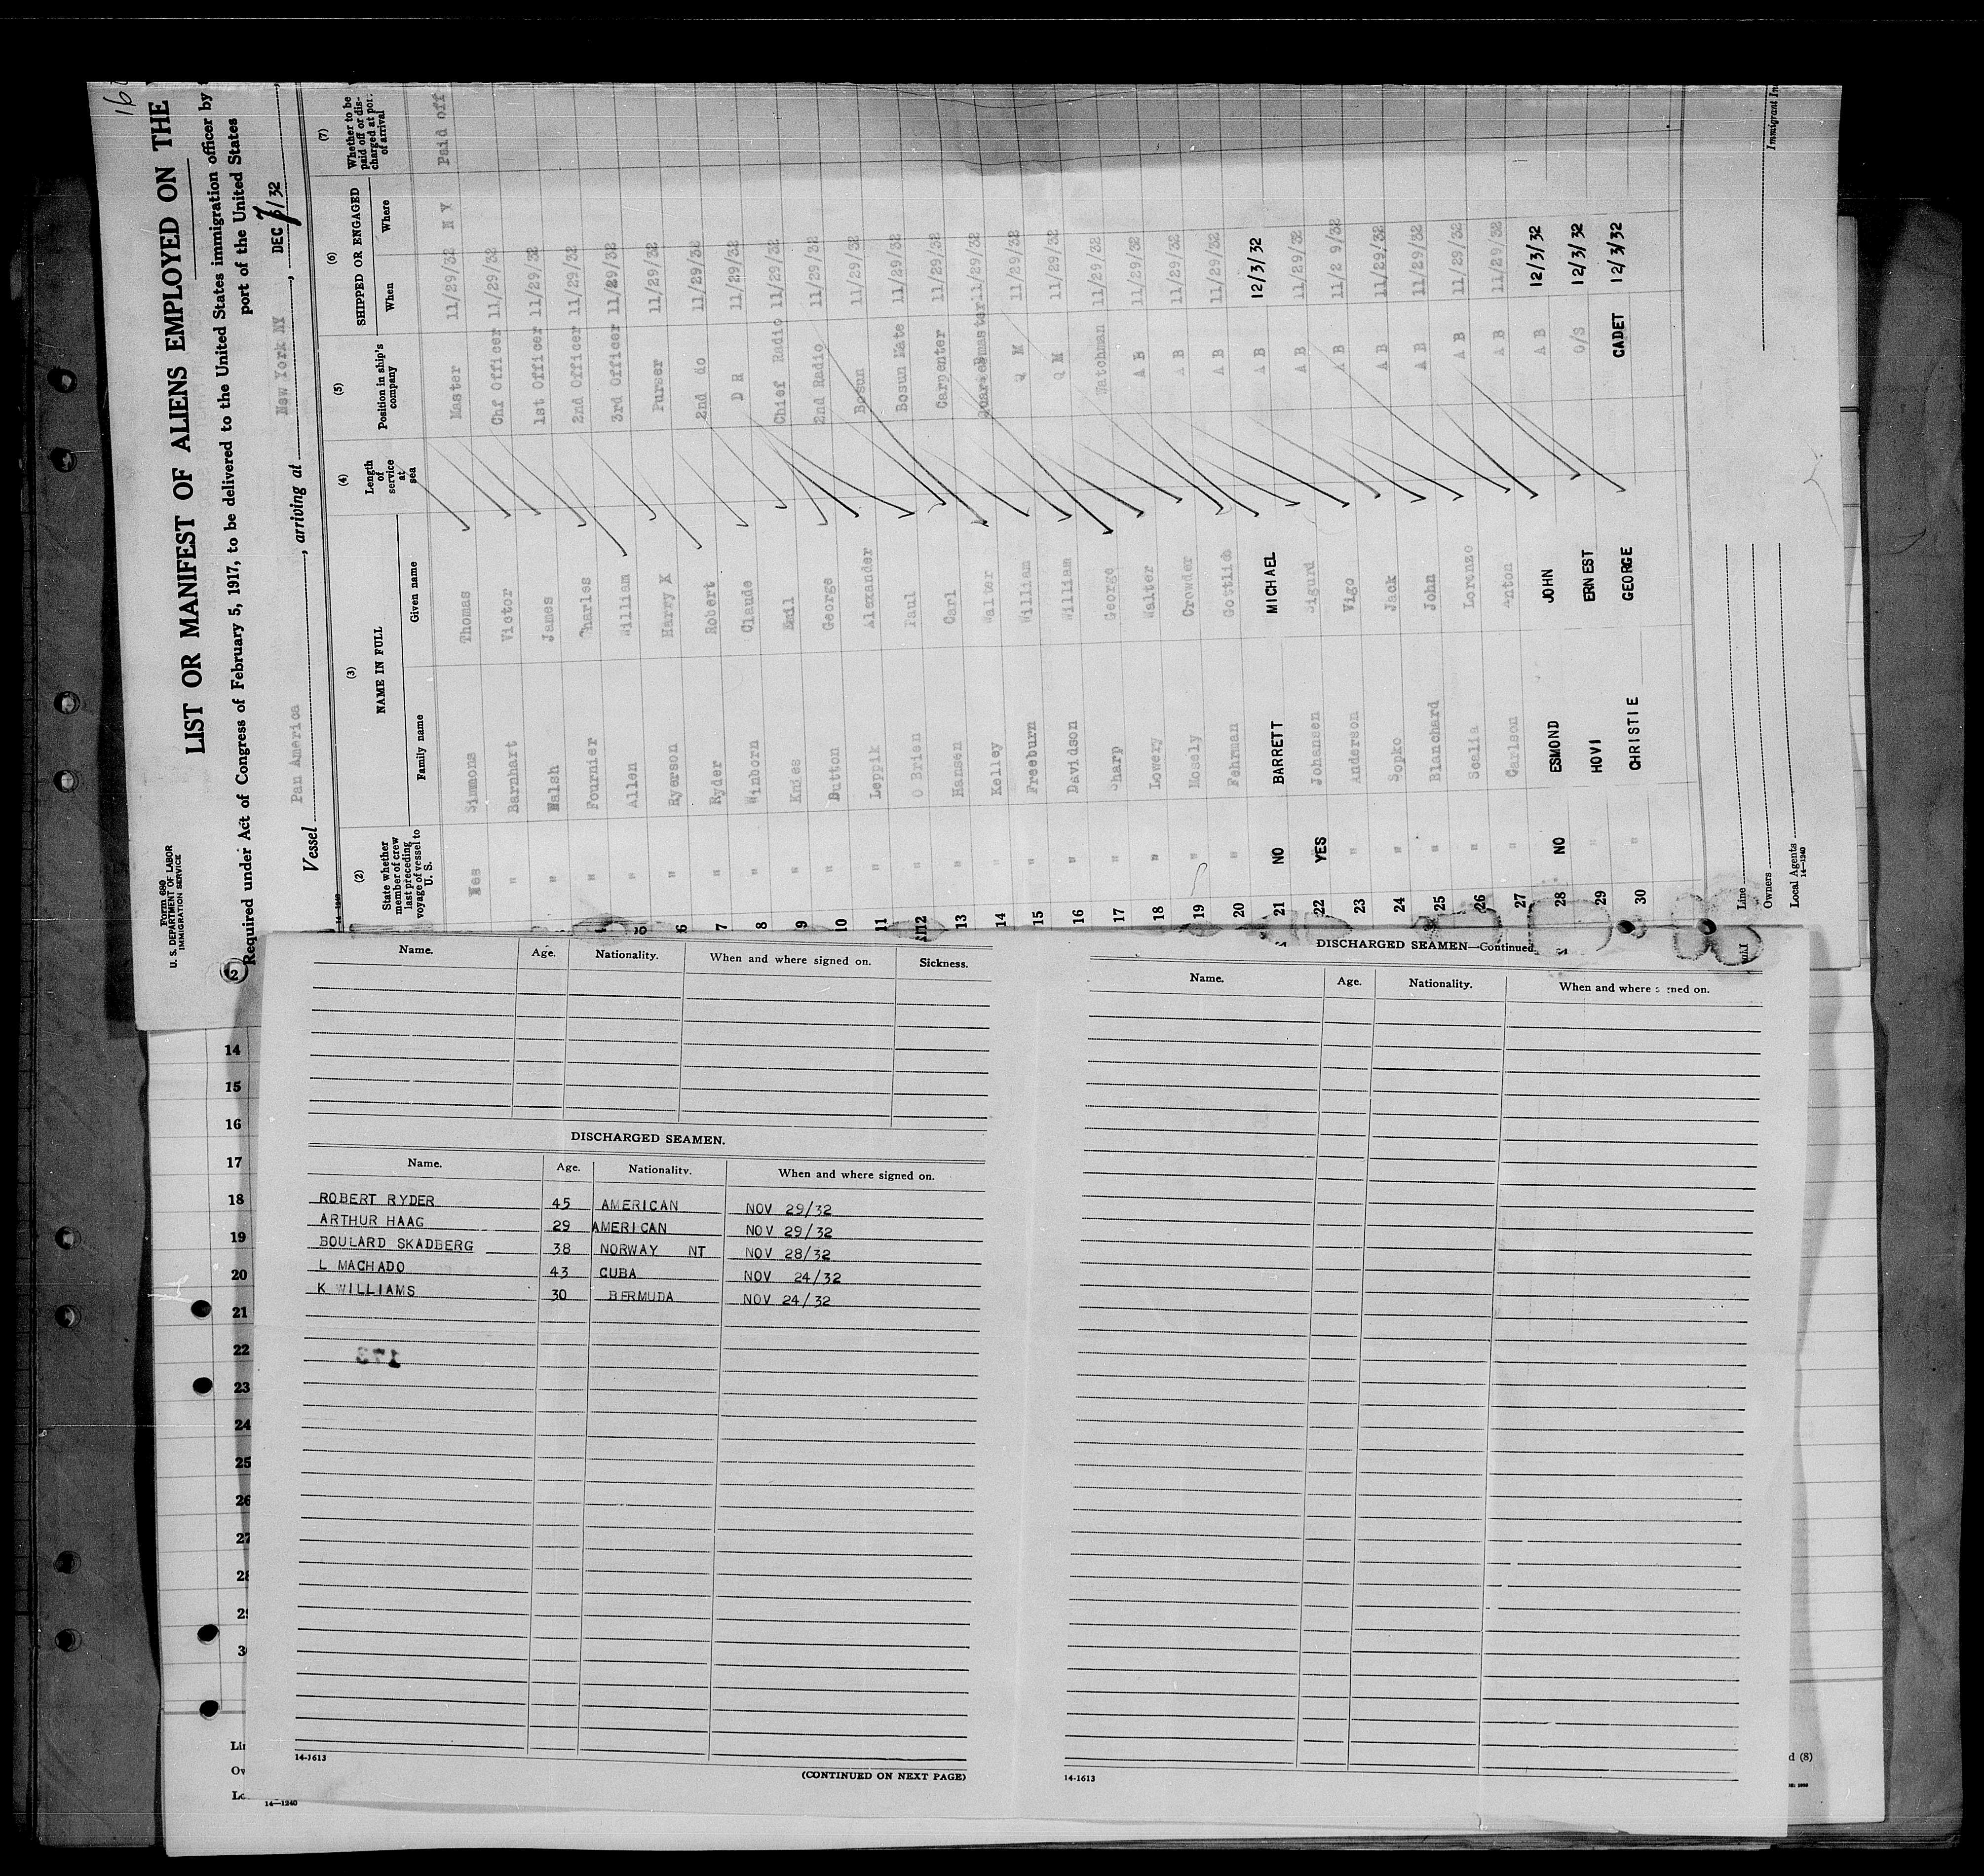 16
Form 680
U. S. DEPARTMENT OF LABOR
IMMIGRATION SERVICE
LIST OR MANIFEST OF ALIENS EMPLOYED ON THE
Required under Act of Congress of February 5, 1917, to be delivered to the United States immigration officer by
port of the United States
Vessel Pan America, arriving at New York NY, DEC 7/32
14-1240
(2) (3) (4) (5) (6) (7)
State whether member of crew last preceding voyage of vessel to U. S. NAME IN FULL Length of service at sea Position in ship's company SHIPPED OR ENGAGED Whether to be paid off or discharged at port of arrival
Family name Given name When Where
Yes Simmons Thomas Master 11/29/32 N Y Paid off
" Barnhart Victor Chf Officer 11/29/32
" Walsh James 1st Officer 11/29/32
" Fournier Charles 2nd Officer 11/29/32
" Allen William 3rd Officer 11/29/32
6 " Ryerson Harry X Purser 11/29/32
7 " Ryder Robert 2nd do 11/29/32
8 " Winborn Claude D R 11/29/32
9 " Knies Emil Chief Radio 11/29/32
10 " Dutton George 2nd Radio 11/29/32
11 " Leppik Alexander Bosun 11/29/32
12 " O Brien Paul Bosun Mate 11/29/32
13 " Hansen Carl Carpenter 11/29/32
14 " Kelley Walter Quartermaster 11/29/32
15 " Freeburn William Q M 11/29/32
16 " Davidson William Q M 11/29/32
17 " Sharp George Watchman 11/29/32
18 " Lowery Walter A B 11/29/32
19 " Mosely Crowder A B 11/29/32
20 " Fehrman Gottlieb A B 11/29/32
21 NO BARRETT MICHAEL A B 12/3/32
22 YES Johansen Sigurd A B 11/29/32
23 " Anderson Vigo A B 11/2 9/32
24 " Sopko Jack A B 11/29/32
25 " Blanchard John A B 11/29/32
26 " Scalia Lorenzo A B 11/29/32
27 " Carlson Anton A B 11/29/32
28 NO ESMOND JOHN A B 12/3/32
29 " HOVI ERNEST O/S 12/3/32
30 " CHRISTIE GEORGE CADET 12/3/32
Line
Owners
Local Agents
14-1240
Immigrant In
Name. Age. Nationality. When and where signed on. Sickness.
DISCHARGED SEAMEN.
Name. Age. Nationality. When and where signed on.
ROBERT RYDER 45 AMERICAN NOV 29/32
ARTHUR HAAG 29 AMERICAN NOV 29/32
BOULARD SKADBERG 38 NORWAY NT NOV 28/32
L MACHADO 43 CUBA NOV 24/32
K WILLIAMS 30 BERMUDA NOV 24/32
14-1613
(CONTINUED ON NEXT PAGE)
DISCHARGED SEAMEN—Continued.
Name. Age. Nationality. When and where signed on.
14-1613
14
15
16
17
18
19
20
21
22
23
24
25
26
27
28
29
3
Li
Ow
Lo
14-1240
d (8)